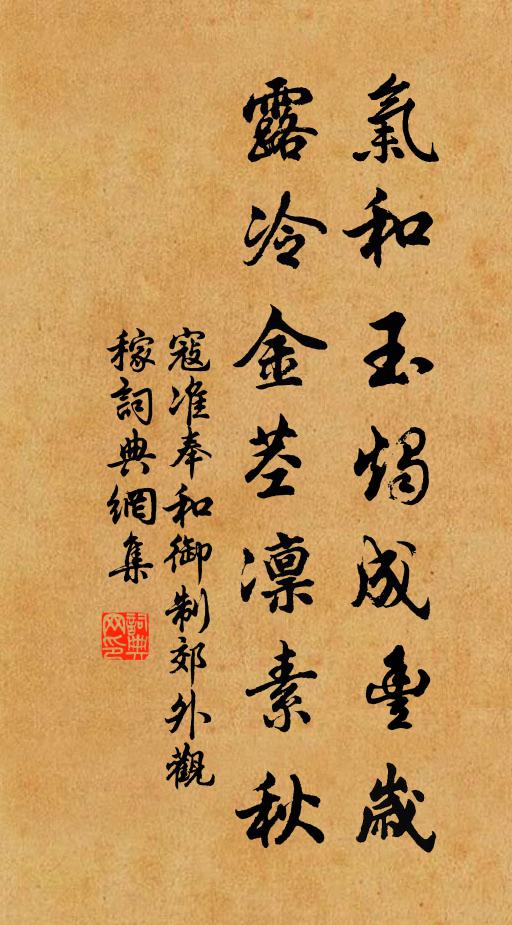 氣和玉燭成豐歲
露冷金莖凛素秋
寇准奉和御制郊外觀
稼詞典網集
詞典
网印